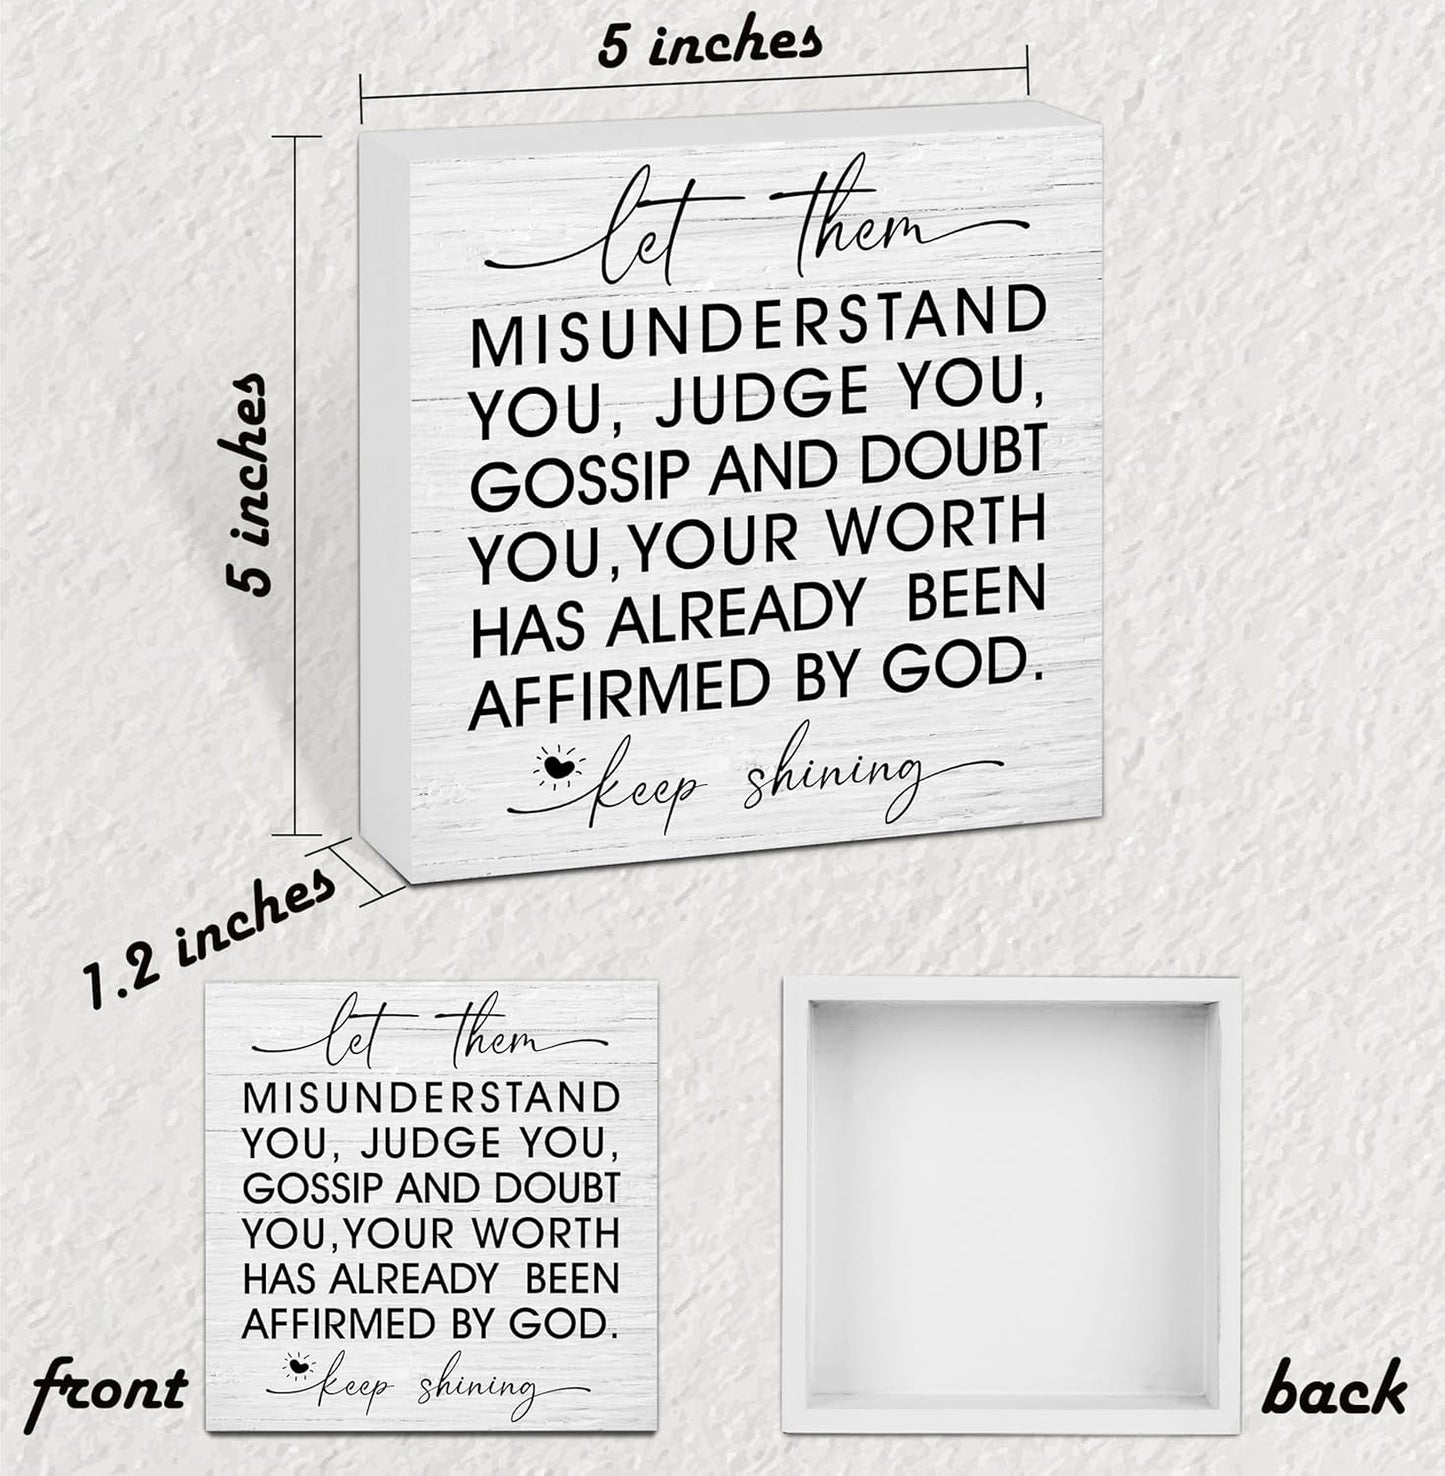 5 inches
5 inches
let them
MISUNDERSTAND
YOU, JUDGE YOU,
GOSSIP AND DOUBT
YOU,YOUR WORTH
HAS ALREADY BEEN
AFFIRMED BY GOD.
keep shining
1.2 inches
let them
MISUNDERSTAND
YOU, JUDGE YOU,
GOSSIP AND DOUBT
YOU,YOUR WORTH
HAS ALREADY BEEN
AFFIRMED BY GOD.
keep shining
front
back